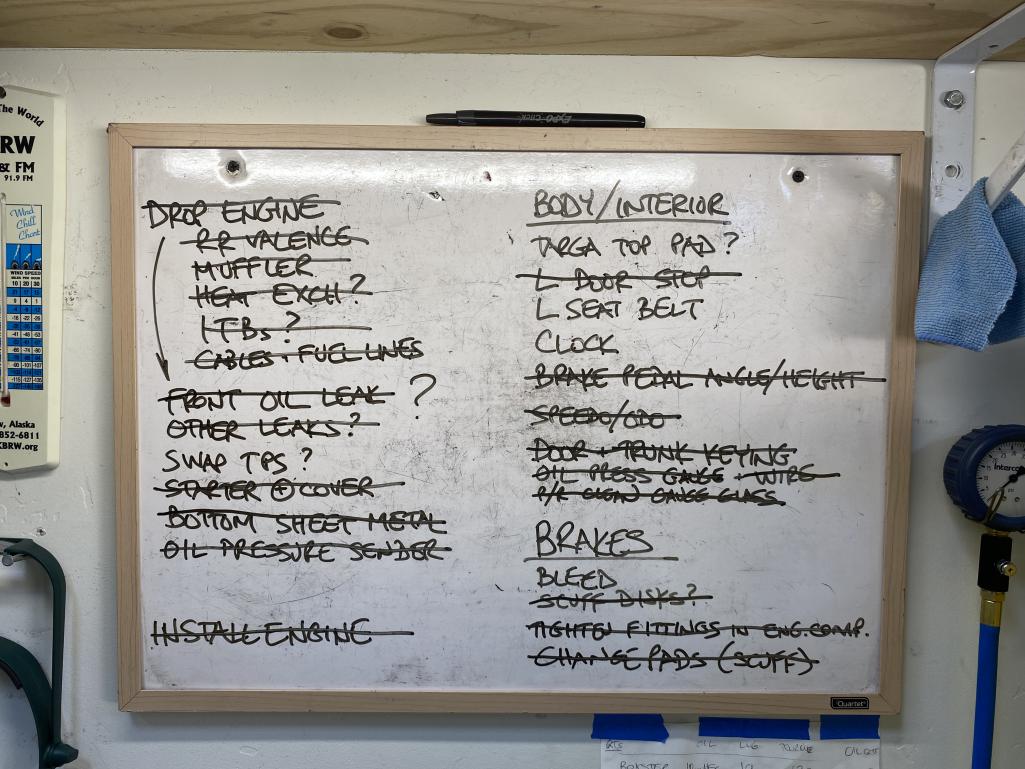 The World
RW
& FM
91.9 FM
Wind
Chill
Chart
WIND SPEED
10 20 30
w, Alaska
852-6811
KBRW.org
EXPO Click
DROP ENGINE
RR VALENCE
MUFFLER
HEAT EXCH?
ITBs?
CABLES + FUEL LINES
FRONT OIL LEAK ?
OTHER LEAKS?
SWAP TPS?
STARTER ⊕ COVER
BOTTOM SHEET METAL
OIL PRESSURE SENDER
INSTALL ENGINE
BODY/INTERIOR
TARGA TOP PAD?
L DOOR STOP
L SEAT BELT
CLOCK
BRAKE PEDAL ANGLE/HEIGHT
SPEEDO/ODO
DOOR + TRUNK KEYING
OIL PRESS GAUGE + WIRE
P/R CLEAN GAUGE GLASS
BRAKES
BLEED
SCUFF DISKS?
TIGHTEN FITTINGS IN ENG.COMP.
CHANGE PADS (SCUFF)
Quartet
Interco
OIL LUG TORQUE
BOXSTER